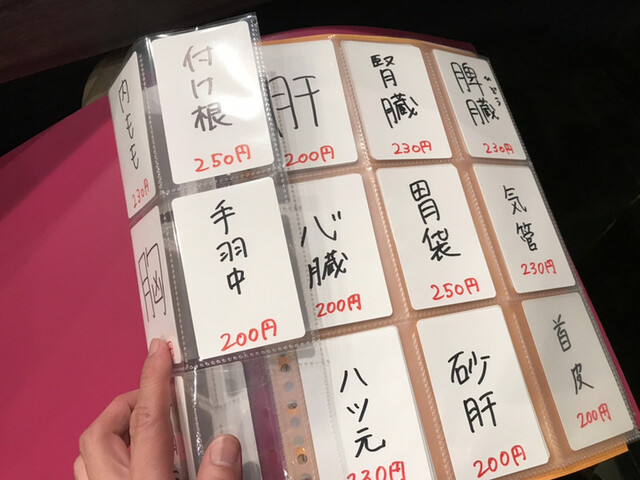 内もも
230円
付け根
250円
肝
200円
腎臓
230円
脾臓
ひぞう
230円
胸
手羽中
200円
心臓
200円
胃袋
250円
気管
230円
ハツ元
230円
砂肝
200円
首皮
200円